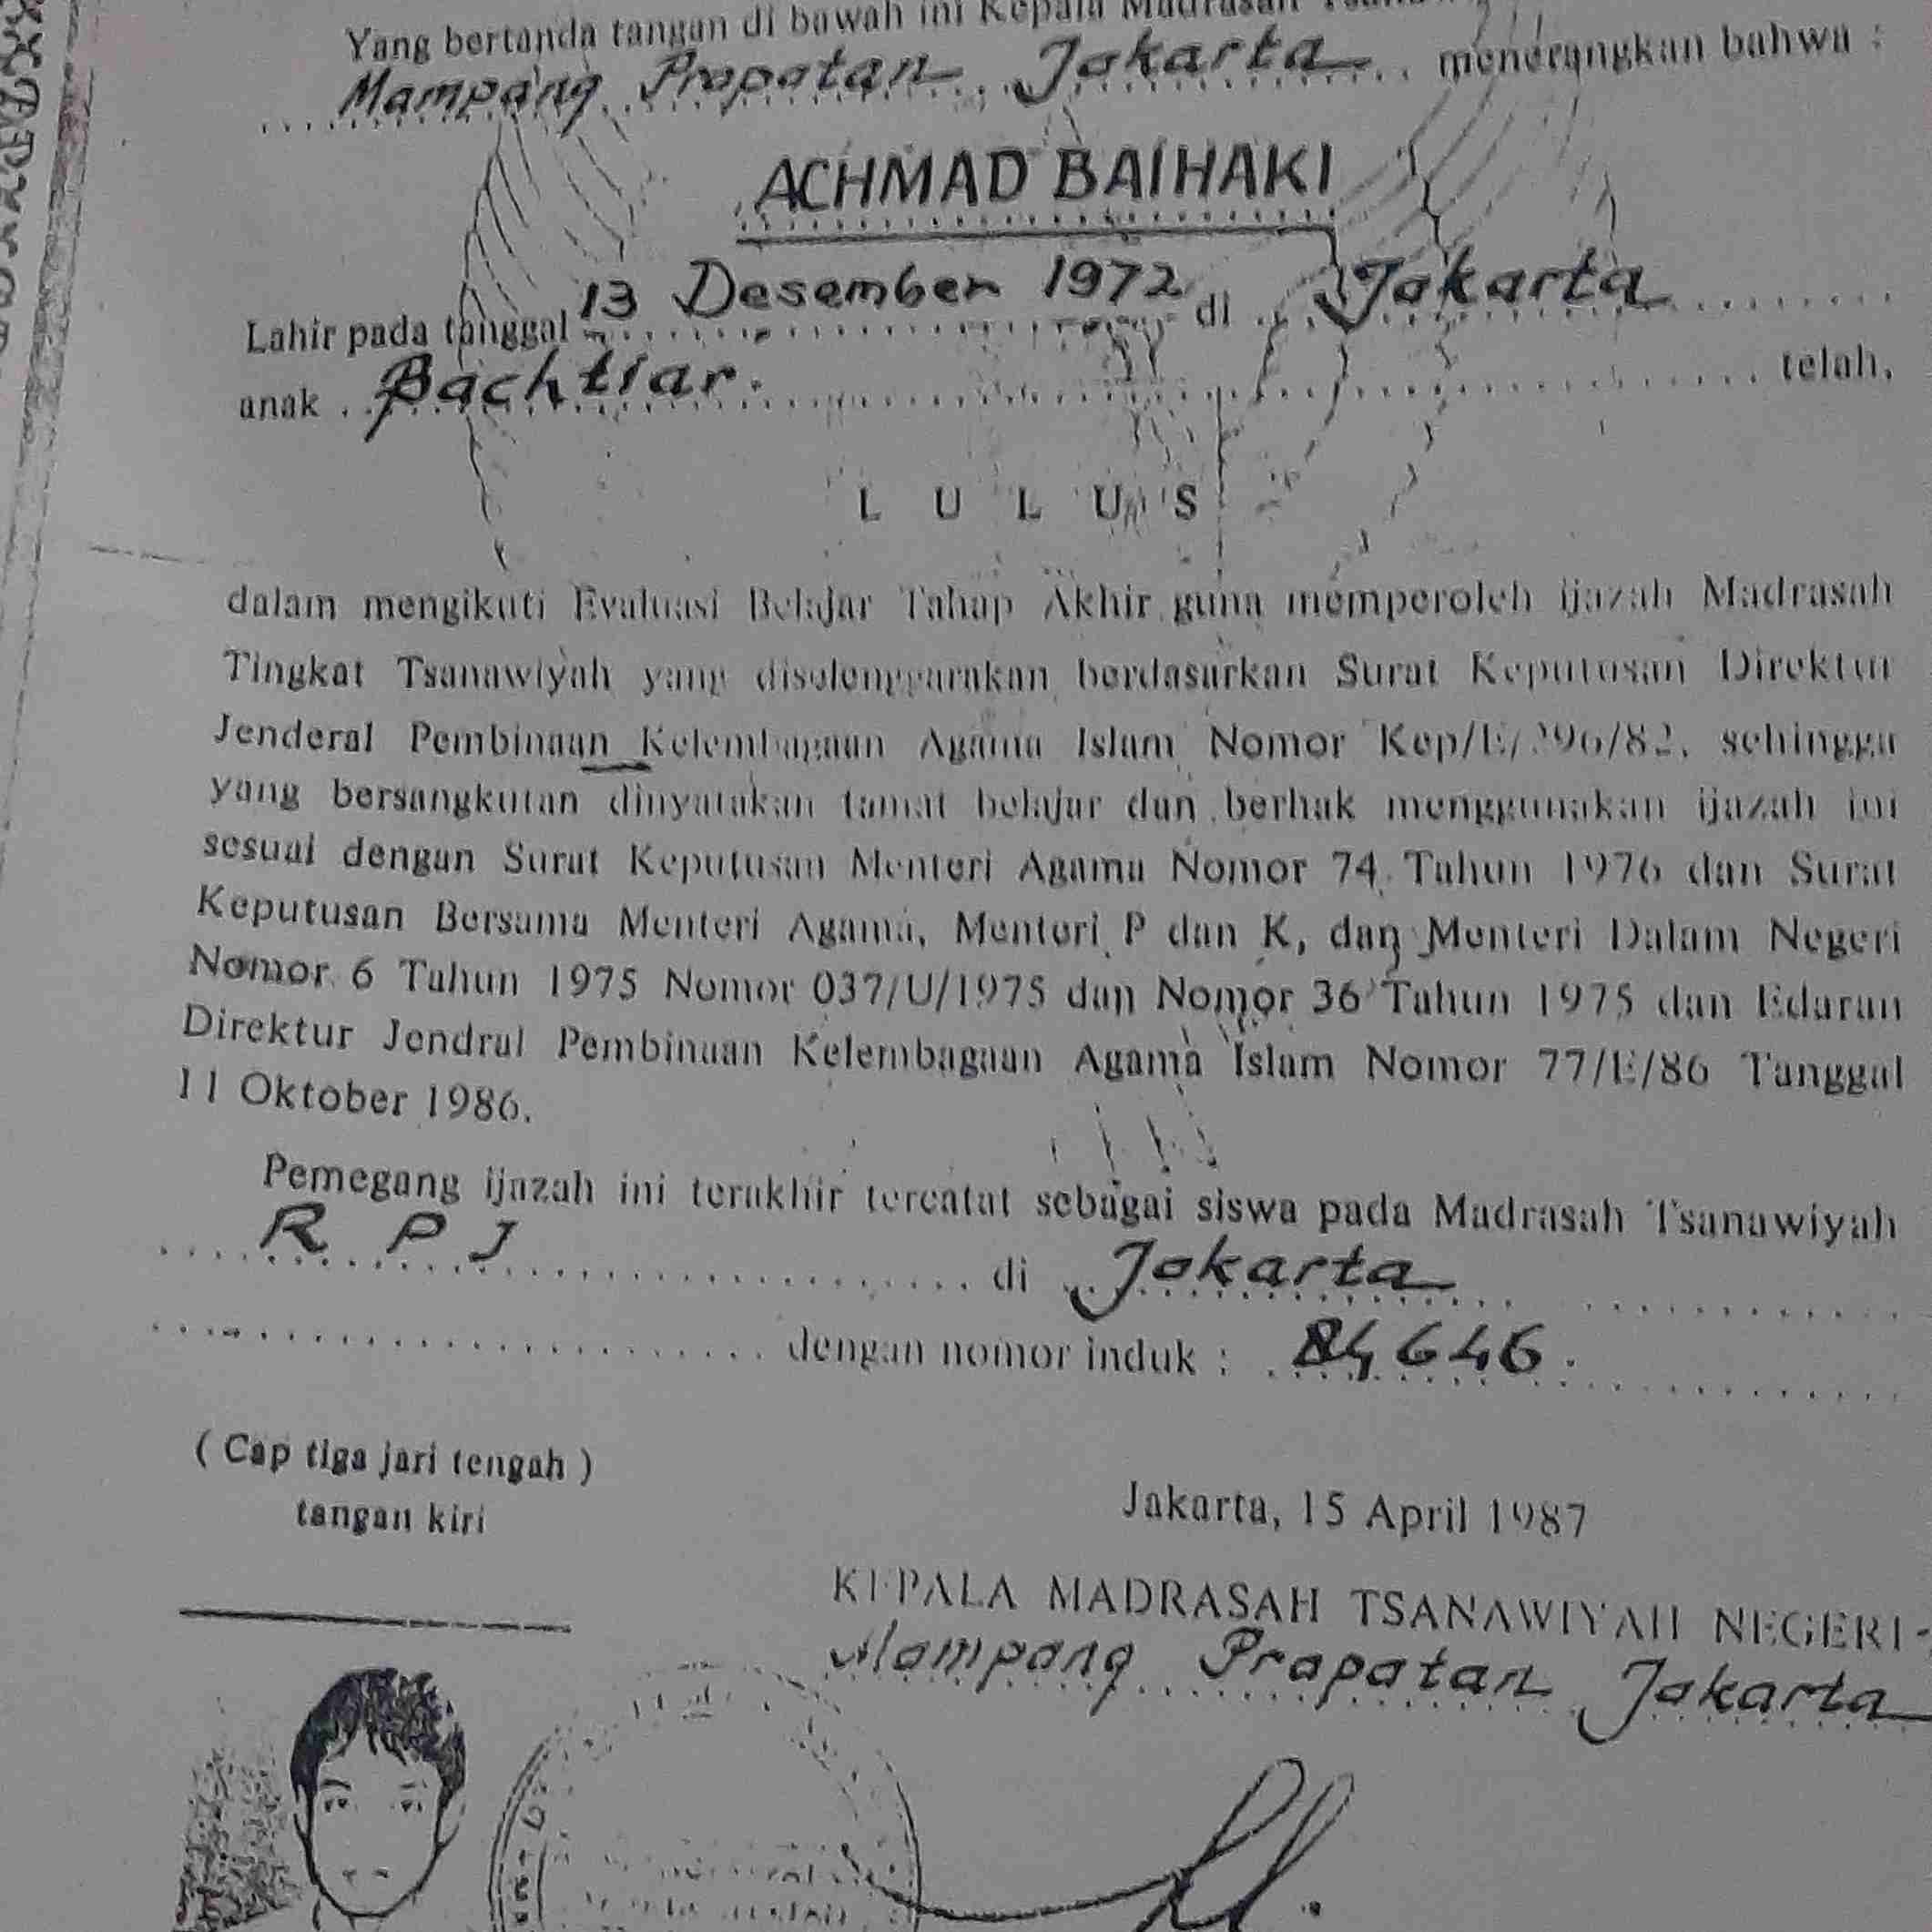 Yang bertanda tangan di bawah ini Kepala Madrasah
Mampang Prapatan Jakarta menerangkan bahwa :
ACHMAD BAIHAKI
Lahir pada tanggal 13 Desember 1972 di Jakarta
anak Bachtiar. telah,
L U L U S
dalam mengikuti Evaluasi Belajar Tahap Akhir guna memperoleh ijazah Madrasah
Tingkat Tsanawiyah yang diselenggarakan berdasarkan Surat Keputusan Direktur
Jenderal Pembinaan Kelembagaan Agama Islam Nomor Kep/E/296/82, sehingga
yang bersangkutan dinyatakan tamat belajar dan berhak menggunakan ijazah ini
sesuai dengan Surat Keputusan Menteri Agama Nomor 74 Tahun 1976 dan Surat
Keputusan Bersama Menteri Agama, Menteri P dan K, dan Menteri Dalam Negeri
Nomor 6 Tahun 1975 Nomor 037/U/1975 dan Nomor 36 Tahun 1975 dan Edaran
Direktur Jendral Pembinaan Kelembagaan Agama Islam Nomor 77/E/86 Tanggal
11 Oktober 1986.
Pemegang ijazah ini terakhir tercatat sebagai siswa pada Madrasah Tsanawiyah
R P J di Jakarta
dengan nomor induk : 84646.
( Cap tiga jari tengah )
tangan kiri
Jakarta, 15 April 1987
KEPALA MADRASAH TSANAWIYAH NEGERI
Mampang Prapatan Jakarta